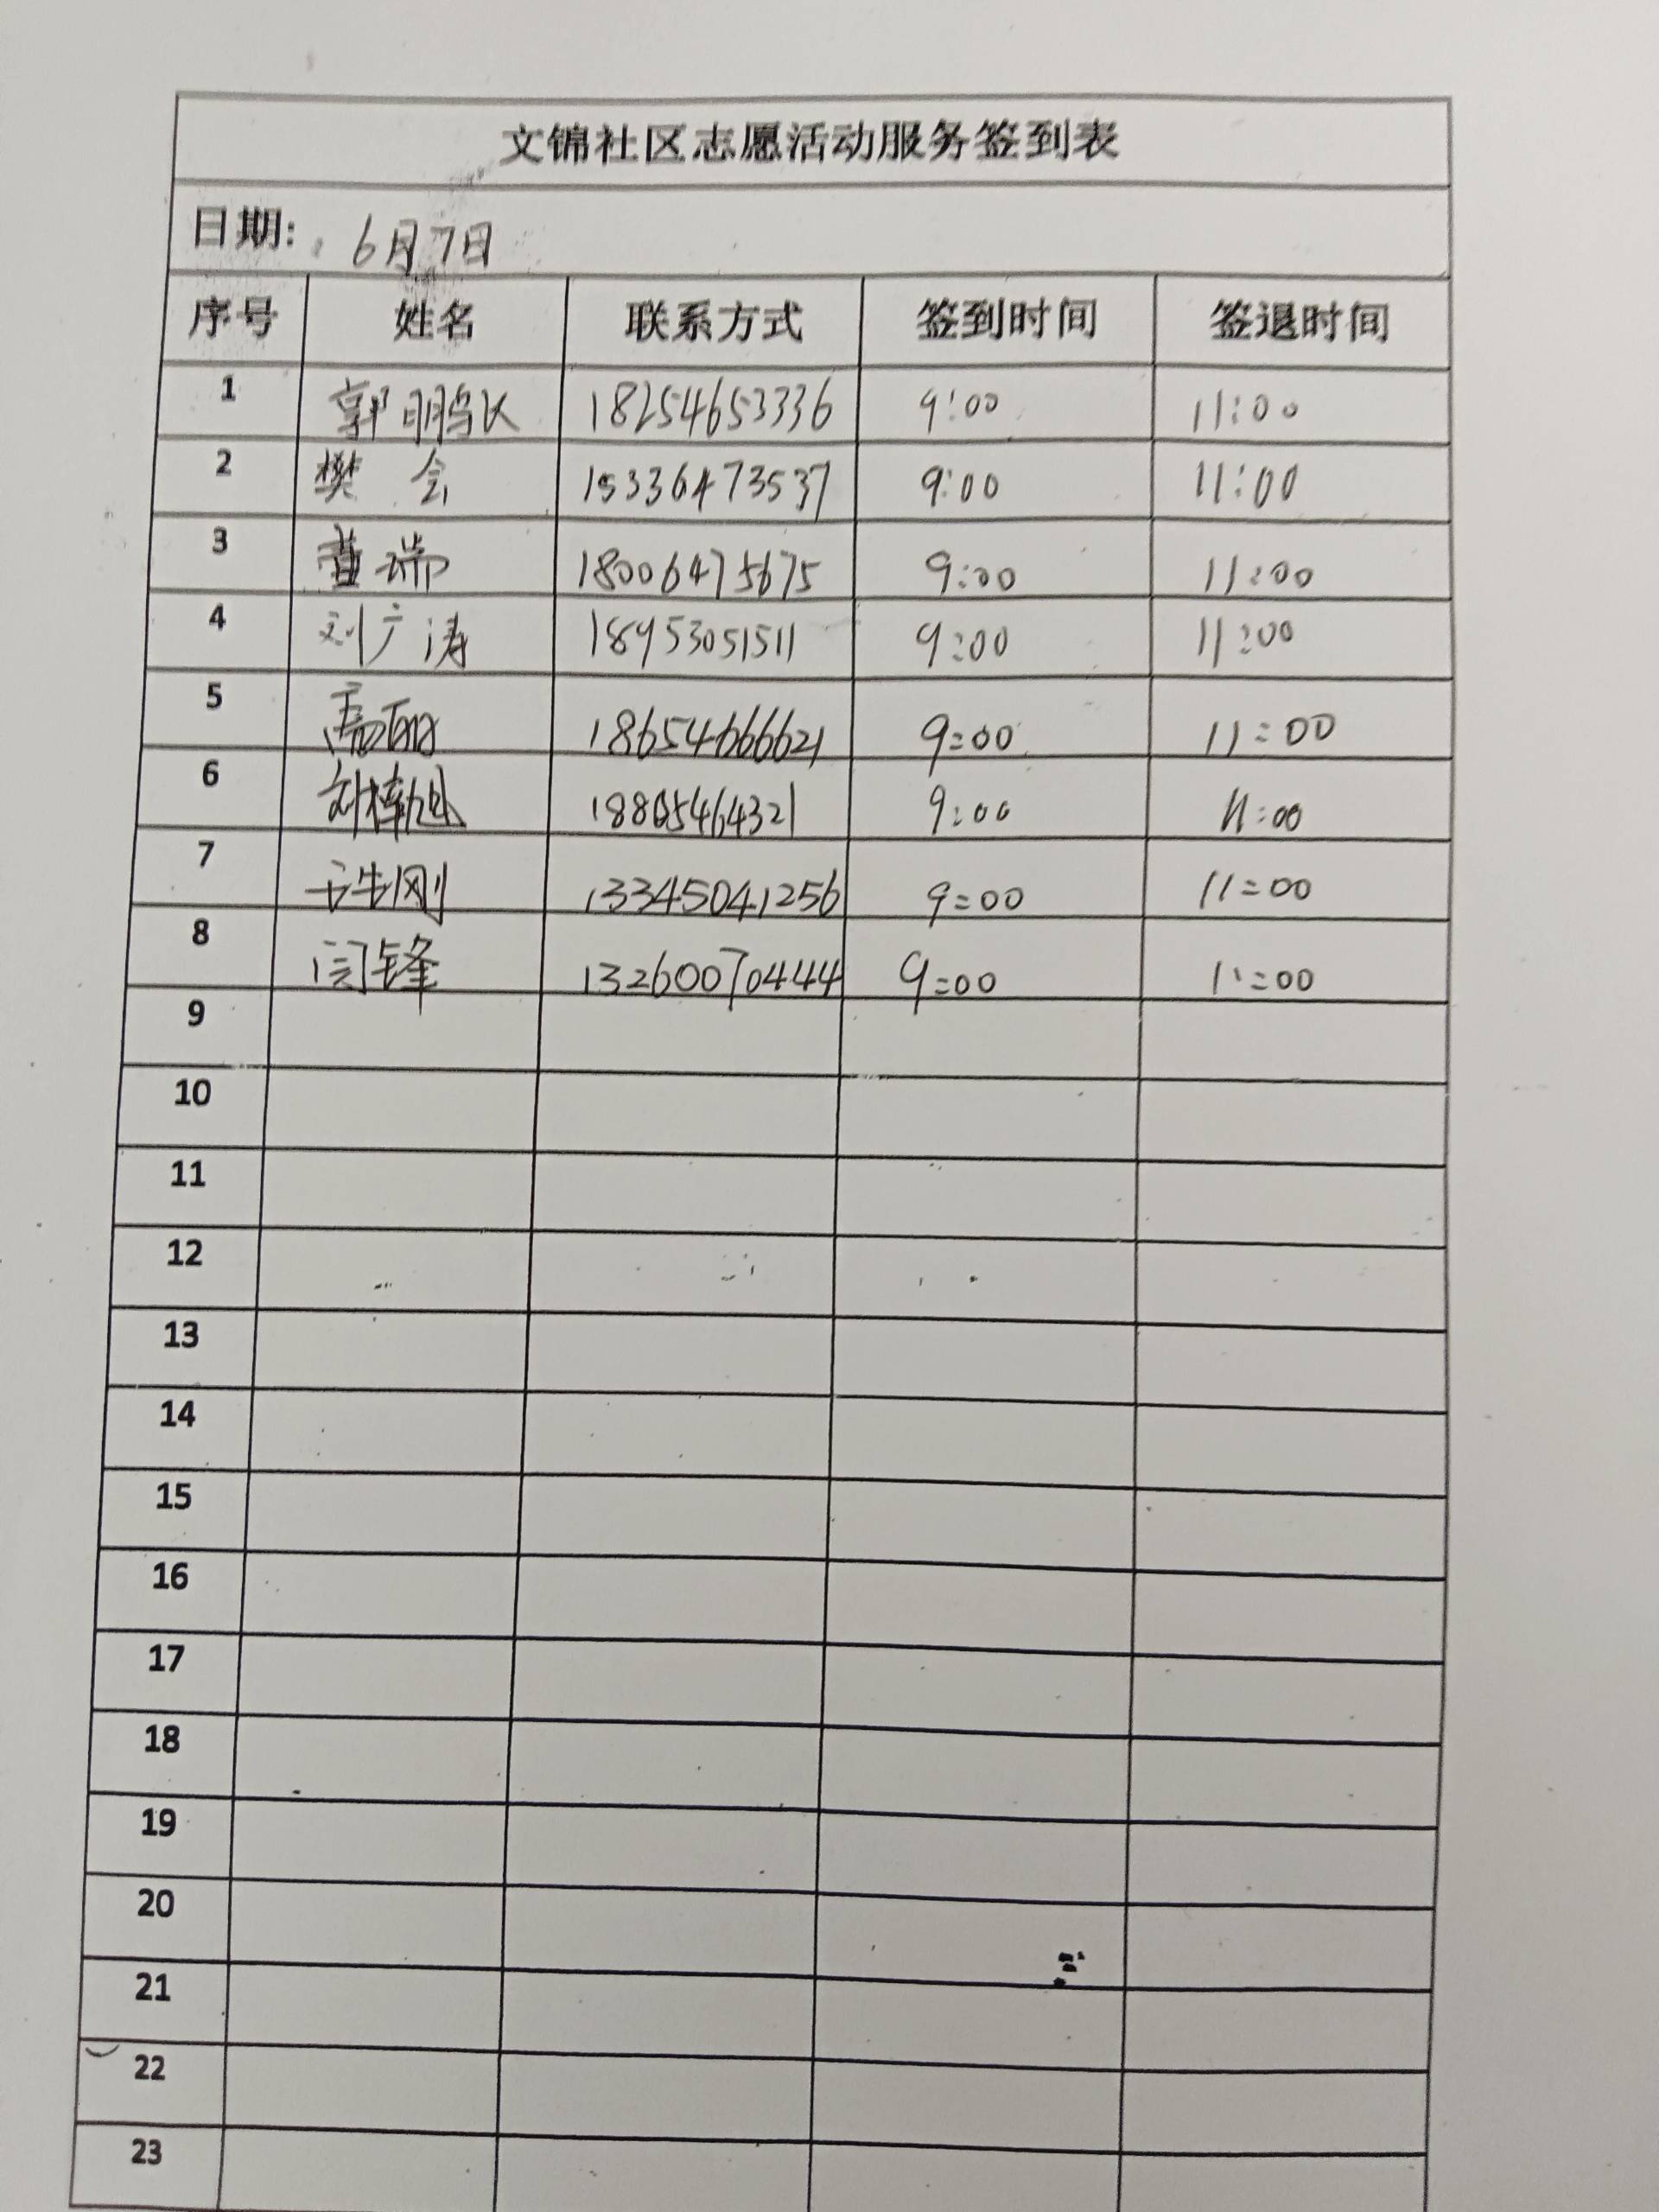 文锦社区志愿活动服务签到表
日期: 6月7日
序号 姓名 联系方式 签到时间 签退时间
1 郭鹏飞 18254653336 9:00 11:00
2 樊会 15336473537 9:00 11:00
3 董瑞 18006475675 9:00 11:00
4 刘广涛 18953051511 9:00 11:00
5 高丽 18654666621 9:00 11:00
6 18805464321 9:00 11:00
7 13345041256 9:00 11:00
8 闫锋 13260070444 9:00 11:00
9
10
11
12
13
14
15
16
17
18
19
20
21
22
23